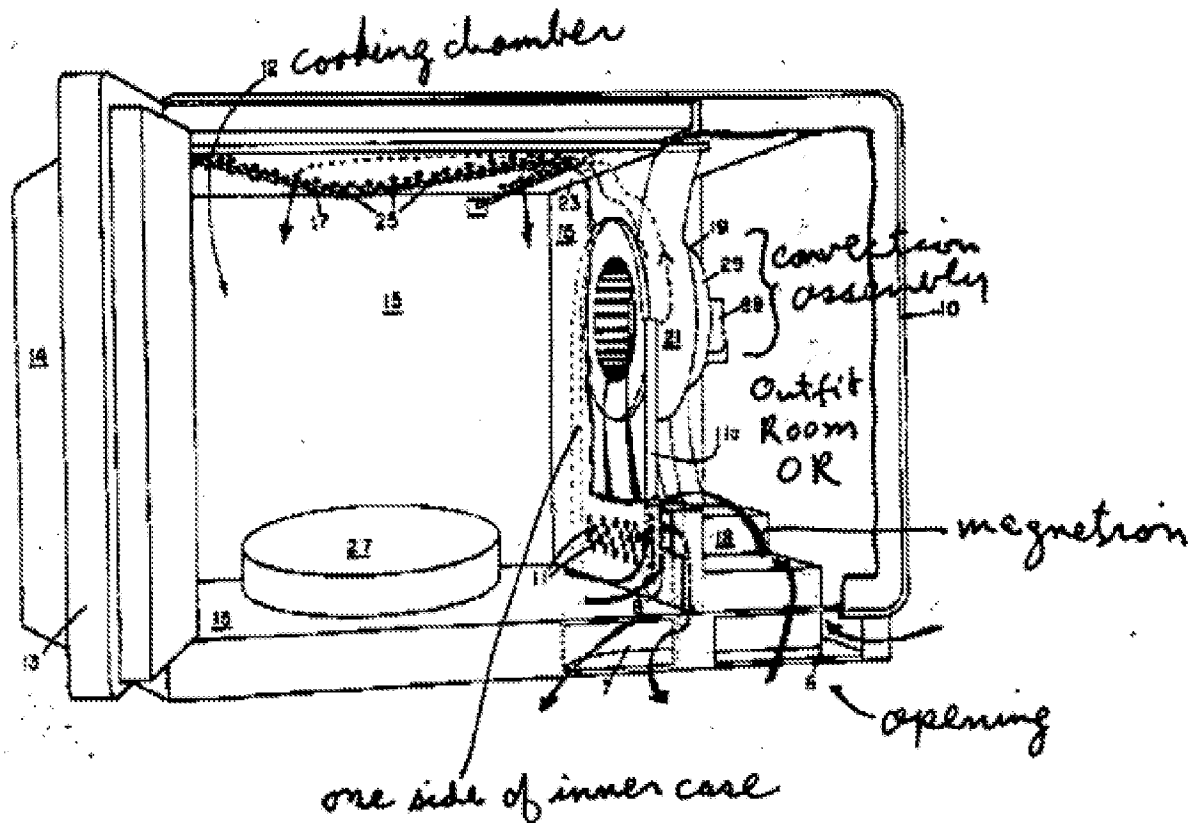 12 cooking chamber
17
25
23
15
19
29
convection
assembly
14
15
21
10
Outfit
Room
OR
magnetron
27
18
11
15
13
7
6
opening
one side of inner case